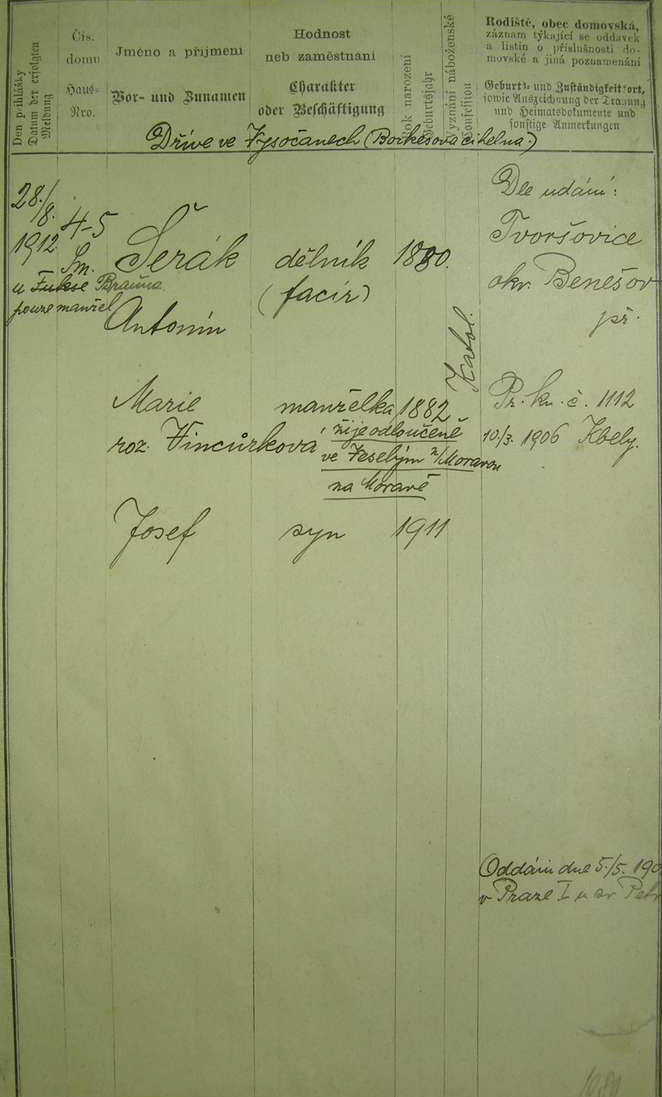 Den přihlášky
Datum der erfolgten
Meldung
Čís.
domu
Haus-
Nro.
Jméno a příjmení
Vor- und Zunamen
Hodnost
neb zaměstnání
Charakter
oder Beschäftigung
Rok narození
Geburtsjahr
Vyznání náboženské
Confession
Rodiště, obec domovská,
záznam týkající se oddavek
a listin o příslušnosti do-
movské a jiná poznamenání
Geburts- und Zuständigkeitsort,
sowie Aufzeichnung der Trauung
und Heimatsdokumente und
sonstige Anmerkungen
Dříve ve Vysočanech (Borkešova cihelna.)
28./8. 4-5 Dle udání:
1912. Sm. Šerák dělník 1880. Tvoršovice
u Fukse Brauna (facír) okr. Benešov
pouze manžel Antonín př.
Katol.
Marie manželka 1882 Pr. kn. č. 1112
roz. Vincůrkova žije odloučeně 10/3. 1906 Kbely.
ve Veselým n/Moravou
na Moravě
Josef syn 1911
Oddáni dne 5./5. 190
v Praze I u sv Petr